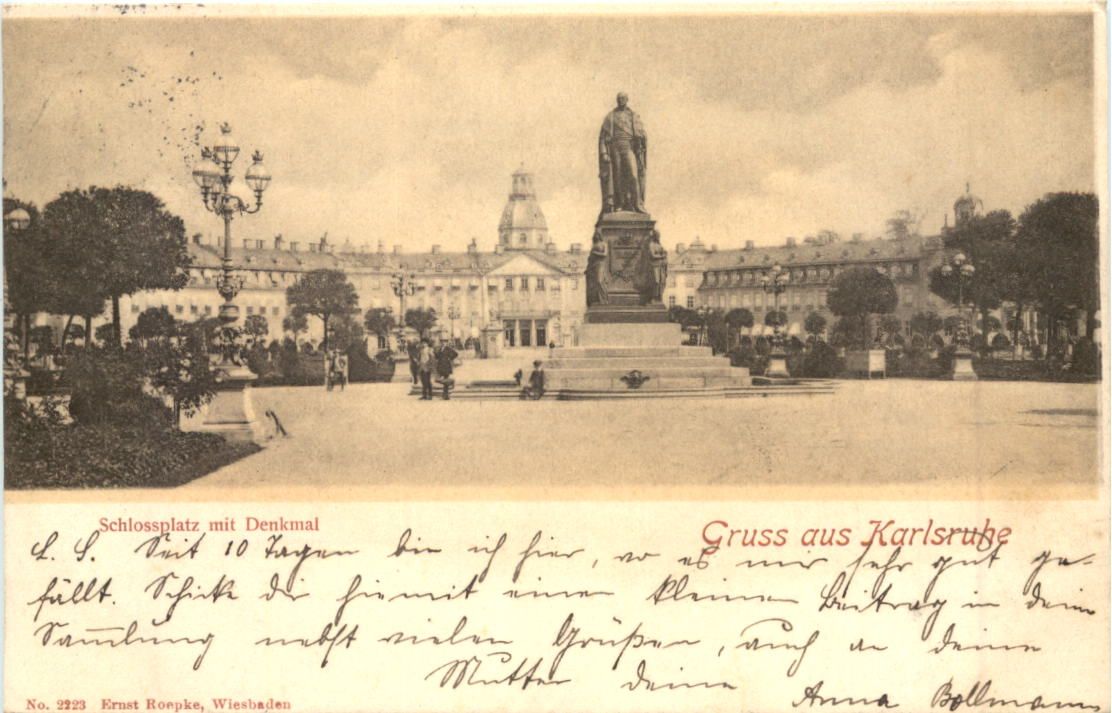 Schlossplatz mit Denkmal
Gruss aus Karlsruhe
L. S. Seit 10 Tagen bin ich hier, wo es mir sehr gut ge-
fällt. Schicke dir hiemit einen kleinen Beitrag in deine
Sam̅lung nebst vielen Grüßen, auch an deine
Mutter deine Anna Bollmann
No. 2223 Ernst Roepke, Wiesbaden